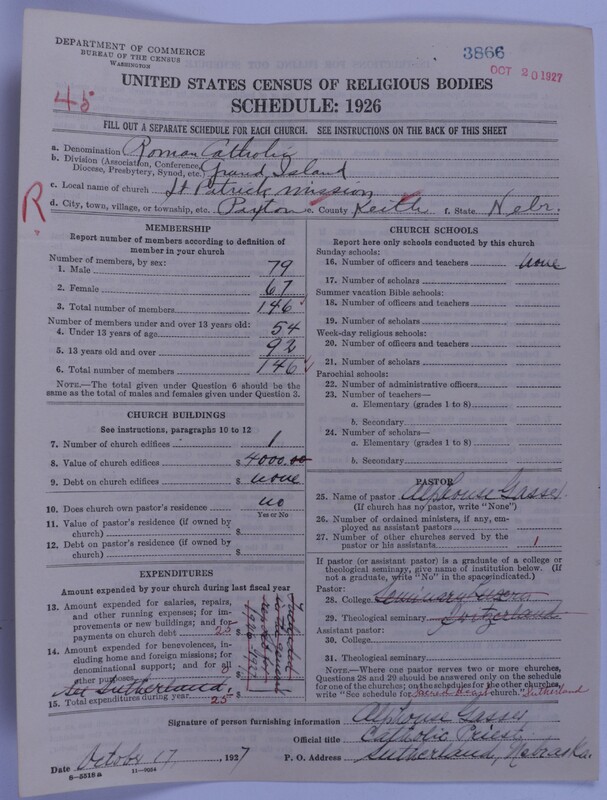 DEPARTMENT OF COMMERCE
BUREAU OF THE CENSUS
WASHINGTON
3866
OCT 20 1927
45
UNITED STATES CENSUS OF RELIGIOUS BODIES
SCHEDULE: 1926
FILL OUT A SEPARATE SCHEDULE FOR EACH CHURCH. SEE INSTRUCTIONS ON THE BACK OF THIS SHEET
a. Denomination Roman Catholic
b. Division (Association, Conference, Diocese, Presbytery, Synod, etc.) Grand Island
c. Local name of church St Patrick Mission
R
d. City, town, village, or township, etc. Paxton e. County Keith f. State Nebr.
MEMBERSHIP
Report number of members according to definition of member in your church
Number of members, by sex:
1. Male 79
2. Female 67
3. Total number of members 146
Number of members under and over 13 years old:
4. Under 13 years of age 54
5. 13 years old and over 92
6. Total number of members 146
NOTE.—The total given under Question 6 should be the same as the total of males and females given under Question 3.
CHURCH BUILDINGS
See instructions, paragraphs 10 to 12
7. Number of church edifices 1
8. Value of church edifices $ 4000.00
9. Debt on church edifices $ none
10. Does church own pastor's residence no
Yes or No
11. Value of pastor's residence (if owned by church) $
12. Debt on pastor's residence (if owned by church) $
EXPENDITURES
Amount expended by your church during last fiscal year
13. Amount expended for salaries, repairs, and other running expenses; for improvements or new buildings; and for payments on church debt 25 $
14. Amount expended for benevolences, including home and foreign missions; for denominational support; and for all other purposes $
See Sutherland,
15. Total expenditures during year 25 $
CHURCH SCHOOLS
Report here only schools conducted by this church
Sunday schools:
16. Number of officers and teachers none
17. Number of scholars
Summer vacation Bible schools:
18. Number of officers and teachers
19. Number of scholars
Week-day religious schools:
20. Number of officers and teachers
21. Number of scholars
Parochial schools:
22. Number of administrative officers
23. Number of teachers—
a. Elementary (grades 1 to 8)
b. Secondary
24. Number of scholars—
a. Elementary (grades 1 to 8)
b. Secondary
PASTOR
25. Name of pastor Alphonse Gasser
(If church has no pastor, write "None")
26. Number of ordained ministers, if any, employed as assistant pastors
27. Number of other churches served by the pastor or his assistants 1
If pastor (or assistant pastor) is a graduate of a college or theological seminary, give name of institution below. (If not a graduate, write "No" in the space indicated.)
Pastor:
28. College Seminary Luzern
29. Theological seminary Switzerland
Assistant pastor:
30. College
31. Theological seminary
NOTE.—Where one pastor serves two or more churches, Questions 28 and 29 should be answered only on the schedule for one of the churches; on the schedules for the other churches, write "See schedule for Sacred Heart church." Sutherland
Signature of person furnishing information Alphonse Gasser
Official title Catholic Priest
Date October 17, 1927 P. O. Address Sutherland, Nebraska
8-5516a 11-9054